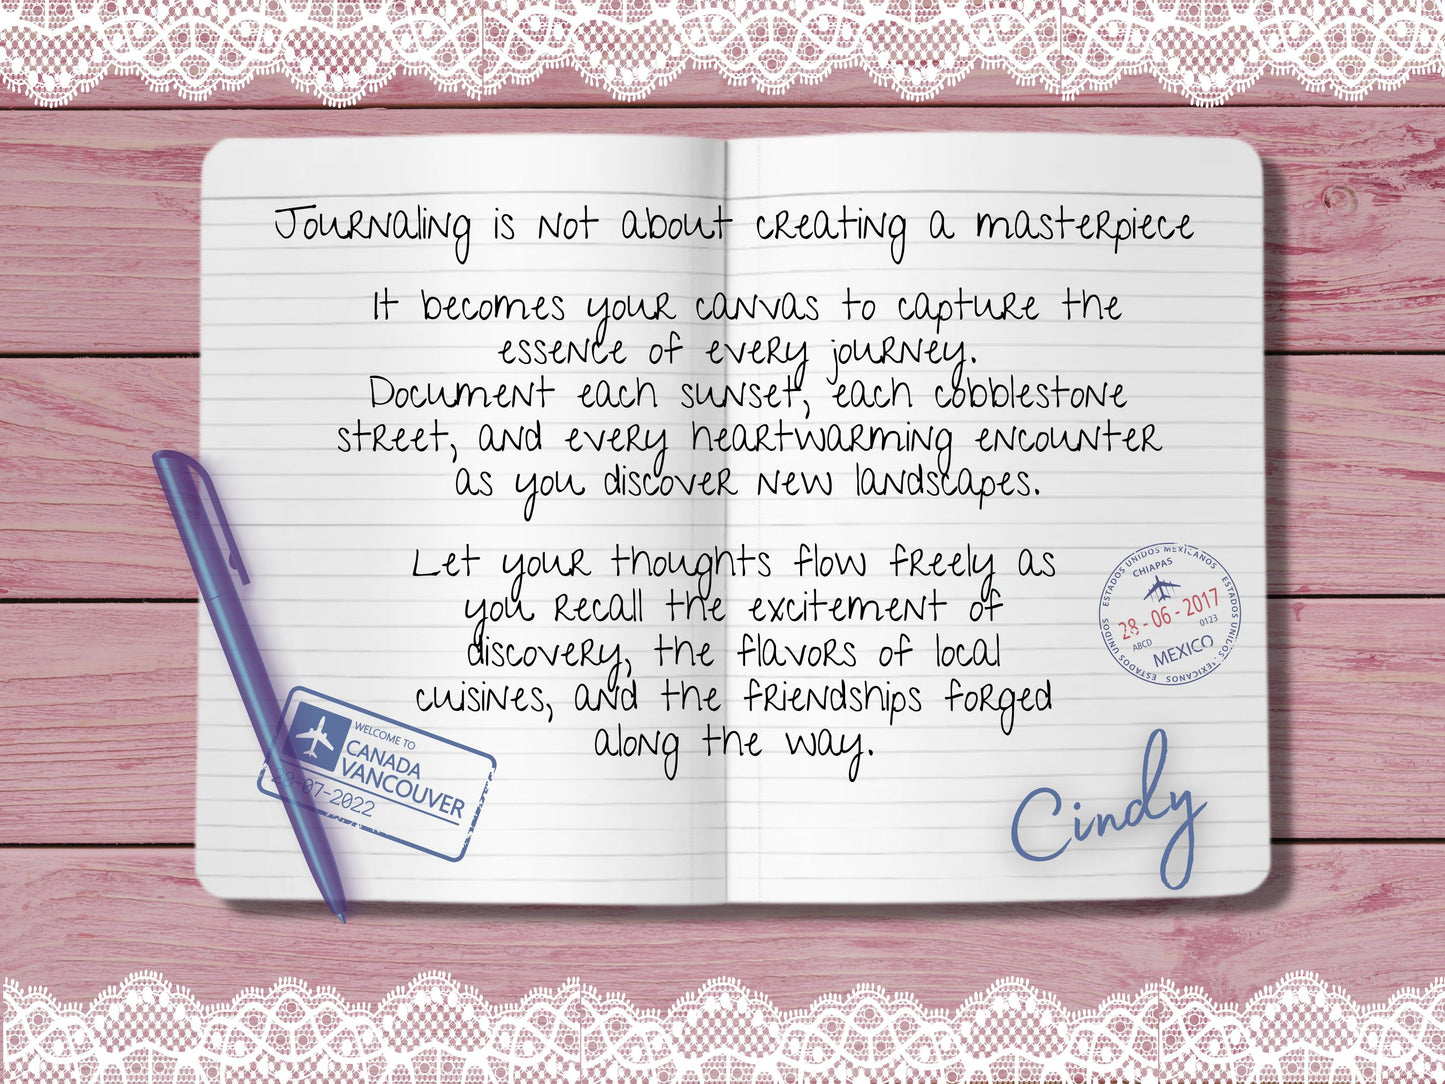 Journaling is not about creating a masterpiece
It becomes your canvas to capture the
essence of every journey.
Document each sunset, each cobblestone
street, and every heartwarming encounter
as you discover new landscapes.
Let your thoughts flow freely as
you recall the excitement of
discovery, the flavors of local
cuisines, and the friendships forged
along the way.
ESTADOS UNIDOS MEXICANOS ESTADOS UNIDOS MEXICANOS ESTADOS UNIDOS
CHIAPAS
28-06-2017
ABCD 0123
MEXICO
WELCOME TO
CANADA
VANCOUVER
20-07-2022
Cindy